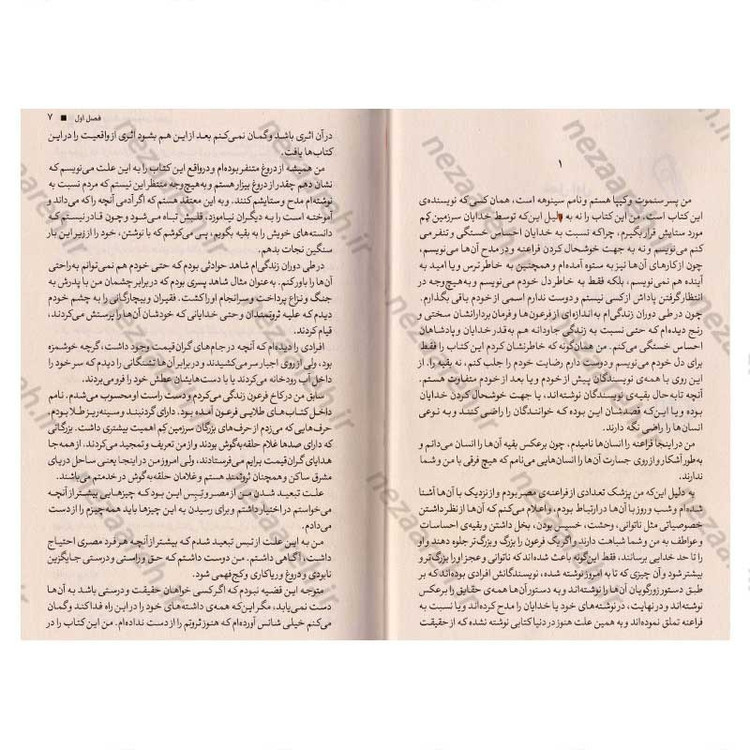 ۱
من پسر سنموت و کیپا هستم و نامم سینوهه است، همان کسی که نویسنده‌ی
این کتاب است. من این کتاب را نه به دلیل این‌که توسط خدایان سرزمین کِم
مورد ستایش قرار بگیرم، چرا که نسبت به خدایان احساس خستگی و تنفر می
کنم می‌نویسم و نه به جهت خوشحال کردن فراعنه و در مدح آن‌ها می‌نویسم،
چون از کارهای آن‌ها نیز به ستوه آمده‌ام و همچنین به خاطر ترس و یا امید به
آینده هم نمی‌نویسم، بلکه فقط به خاطر دل خودم می‌نویسم و به‌هیچ‌وجه در
انتظار گرفتن پاداش از کسی نیستم و دوست ندارم اسمی از خودم باقی بگذارم.
چون در طی دوران زندگی‌ام به اندازه‌ای از فرعون‌ها و فرمانروایان سختی و
رنج دیده‌ام که حتی نسبت به زندگی جاودانه هم به‌قدر خدایان و پادشاهان
احساس خستگی می‌کنم. من همان‌گونه که خاطرنشان کردم این کتاب را فقط
برای دل خودم می‌نویسم و دوست دارم رضایت خودم را جلب کنم، نه بقیه را. از
این روی با همه‌ی نویسندگان پیش از خودم و یا بعد از خودم متفاوت هستم.
آنچه تا به حال بقیه‌ی نویسندگان نوشته‌اند، یا جهت خوشحال کردن خدایان
بوده و یا این‌که قصدشان این بوده که خوانندگان را راضی کنند و به نوعی
انسان‌ها را راضی نگه دارند.
من در اینجا فراعنه را انسان‌ها نامیدم، چون برعکس بقیه آن‌ها را انسان می‌دانم و
به‌طور آشکار و از روی جسارت آن‌ها را انسان‌هایی می‌نامم که هیچ فرقی با من و شما
ندارند.
به دلیل این‌که من پزشک تعدادی از فراعنه‌ی مصر بودم و از نزدیک با آن‌ها آشنا
شده‌ام و شب و روز با آن‌ها در ارتباط بوده‌ام، و اعلام می‌کنم که آن‌ها از نظر داشتن
خصوصیاتی مثل ناتوانی، وحشت، خسیس بودن، بخل داشتن و بقیه‌ی احساسات
و عواطف به من و شما شباهت دارند و اگر یک فرعون را بزرگ و بزرگ‌تر جلوه دهند و او
را تا حد خدایی برسانند، فقط این‌گونه باعث شده‌اند که ناتوانی و عجز او بزرگ‌تر و
بیشتر شود و آن چیزی که تا به امروز نوشته شده، نویسندگانش افرادی بوده‌اند که بر
طبق دستور زورگویان آن‌ها را نوشته‌اند و به دستور آن‌ها همه‌ی حقایق را برعکس
نوشته‌اند و در نهایت، در نوشته‌های خود یا خدایان را مدح کرده‌اند و یا نسبت به
فراعنه تملق نموده‌اند و به همین علت هنوز در دنیا کتابی نوشته نشده که از حقیقت
فصل اول ■ ۷
در آن اثری باشد و گمان نمی‌کنم بعد از این هم بشود اثری از واقعیت را در این
کتاب‌ها یافت.
من همیشه از دروغ متنفر بوده‌ام و در واقع این کتاب را به این علت می‌نویسم که
نشان دهم چقدر از دروغ بیزار هستم و به‌هیچ‌وجه منتظر این نیستم که مردم نسبت به
نوشته‌ام مدح و ستایشم کنند. و به این معتقد هستم که اگر آدمی آنچه را که راه
آموخته است را به دیگران نیاموزد، قلبش تباه می‌شود و چون قادر نیستم که
دانسته‌های خویش را به بقیه بگویم، پس می‌کوشم که با نوشتن، خود را از زیر این بار
سنگین نجات بدهم.
در طی دوران زندگی‌ام شاهد حوادثی بودم که حتی خودم هم نمی‌توانم به‌راحتی
آن‌ها را باور کنم. به‌عنوان مثال شاهد پسری بودم که در برابر چشمان من با پدرش به
جنگ و نزاع پرداخت و سرانجام او را کشت. فقیران و بیچارگانی را به چشم خودم
دیدم که علیه ثروتمندان و حتی خدایانی که خودشان آن‌ها را پرستش می‌کردند،
قیام کردند.
افرادی را دیده‌ام که آنچه در جام‌های گران قیمت وجود داشت، گرچه خوشمزه
بود، ولی از روی اجبار سر می‌کشیدند و در برابر آن‌ها تشنگانی را دیدم که سر خود را
داخل آب رودخانه می‌کردند یا با دست‌هایشان عطش خود را فرو می‌بردند.
سابق من در کاخ فرعون زندگی می‌کردم و دست راست او محسوب می‌شدم. نامم
داخل کتاب‌های طلایی فرعون آمده بود. دارای گردنبند و سینه‌ریز طلا بودم،
حرف‌هایی که می‌زدم از حرف‌های بزرگان سرزمین کِم اهمیت بیشتری داشت. بزرگانی
که دارای صدها غلام حلقه‌به‌گوش بودند و از من تعریف و تمجید می‌کردند. از همه‌جا
هدایای گران‌قیمت برایم می‌فرستادند، ولی امروز من در اینجا یعنی ساحل دریای
مشرق ساکن و همچنان ثروتمند هستم و غلامان حلقه‌به‌گوش در خدمتم می‌باشند.
علت تبعید شدن من از مصر و تِبِس این بود که چیزهایی بیشتر از آنچه
می‌خواستم در اختیار داشتم و برای رسیدن به این چیزها باید همه‌چیزم را از دست
می‌دادم.
من به این علت از تبس تبعید شدم که بیشتر از آنچه هر فرد مصری احتیاج
داشت، آگاهی داشتم. من دوست داشتم که حق و راستی و درستی جایگزین
نابودی و دروغ و ریاکاری و کج‌فهمی شود.
متوجه این قضیه نبودم که اگر کسی خواهان حقیقت و درستی باشد به آن‌ها
دست نمی‌یابد، مگر این‌که همه‌ی داشته‌های خود را در این راه فدا کند و گمان
می‌کنم خیلی شانس آورده‌ام که هنوز ثروتم را از دست نداده‌ام. من این کتاب را در
nezaareh.ir